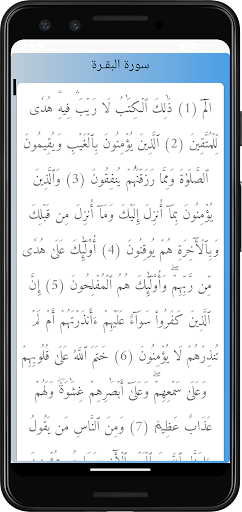 سورة البقرة
الٓمٓ (1) ذَٰلِكَ ٱلْكِتَٰبُ لَا رَيْبَۛ فِيهِۛ هُدًى
لِّلْمُتَّقِينَ (2) ٱلَّذِينَ يُؤْمِنُونَ بِٱلْغَيْبِ وَيُقِيمُونَ
ٱلصَّلَوٰةَ وَمِمَّا رَزَقْنَٰهُمْ يُنفِقُونَ (3) وَٱلَّذِينَ
يُؤْمِنُونَ بِمَآ أُنزِلَ إِلَيْكَ وَمَآ أُنزِلَ مِن قَبْلِكَ
وَبِٱلْءَاخِرَةِ هُمْ يُوقِنُونَ (4) أُو۟لَٰٓئِكَ عَلَىٰ هُدًى
مِّن رَّبِّهِمْۖ وَأُو۟لَٰٓئِكَ هُمُ ٱلْمُفْلِحُونَ (5) إِنَّ
ٱلَّذِينَ كَفَرُوا۟ سَوَآءٌ عَلَيْهِمْ ءَأَنذَرْتَهُمْ أَمْ لَمْ
تُنذِرْهُمْ لَا يُؤْمِنُونَ (6) خَتَمَ ٱللَّهُ عَلَىٰ قُلُوبِهِمْ
وَعَلَىٰ سَمْعِهِمْۖ وَعَلَىٰٓ أَبْصَٰرِهِمْ غِشَٰوَةٌۖ وَلَهُمْ
عَذَابٌ عَظِيمٌ (7) وَمِنَ ٱلنَّاسِ مَن يَقُولُ